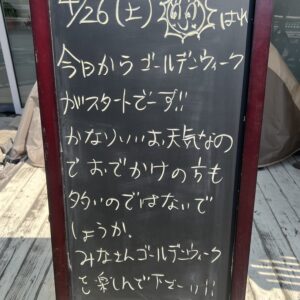 4/26(土) はれ
今日からゴールデンウィーク
がスタートでーす!!
かなりいいお天気なの
でおでかけの方も
多いのではないで
しょうか。
みなさんゴールデンウィーク
を楽しんで下さーい!!